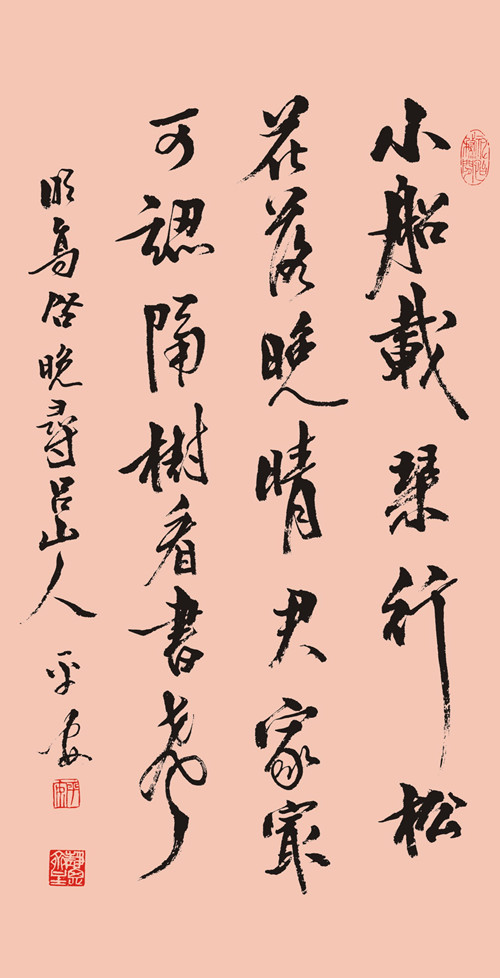 小船載琴行松
花落晚晴君家最
可認隔樹看書聲
明高启晚尋呂山人 平安